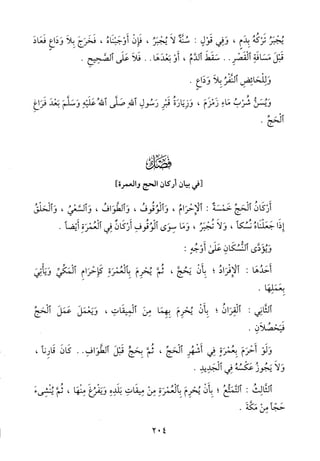 يُجْبَرُ تَرْكُهُ بِدَمٍ ، وَفِي قَوْلٍ : سُنَّةٌ لاَ يُجْبَرُ ، فَإِنْ أَوْجَبْنَاهُ ، فَخَرَجَ بِلاَ وَدَاعٍ فَعَادَ
قَبْلَ مَسَافَةِ ٱلْقَصْرِ . . سَقَطَ ٱلدَّمُ ، أَوْ بَعْدَهَا . . فَلاَ عَلَى ٱلصَّحِيحِ .
وَلِلْحَائِضِ ٱلنَّفْرُ بِلاَ وَدَاعٍ .
وَيُسَنُّ شُرْبُ مَاءِ زَمْزَمَ ، وَزِيَارَةُ قَبْرِ رَسُولِ ٱللهِ صَلَّى ٱللهُ عَلَيْهِ وَسَلَّمَ بَعْدَ فَرَاغِ
ٱلْحَجِّ .
فَصْلٌ
[في بيان أركان الحج والعمرة]
أَرْكَانُ ٱلْحَجِّ خَمْسَةٌ : ٱلإِحْرَامُ ، وَٱلْوُقُوفُ ، وَٱلطَّوَافُ ، وَٱلسَّعْيُ ، وَٱلْحَلْقُ
إِذَا جَعَلْنَاهُ نُسُكاً ، وَلاَ تُجْبَرُ ، وَمَا سِوَى ٱلْوُقُوفِ أَرْكَانٌ فِي ٱلْعُمْرَةِ أَيْضاً .
وَيُؤَدَّى ٱلنُّسُكَانِ عَلَىٰ أَوْجُهٍ :
أَحَدُهَا : ٱلإِفْرَادُ ؛ بِأَنْ يَحُجَّ ، ثُمَّ يُحْرِمَ بِٱلْعُمْرَةِ كَإِحْرَامِ ٱلْمَكِّيِّ وَيَأْتِيَ
بِعَمَلِهَا .
ٱلثَّانِي : ٱلْقِرَانُ ؛ بِأَنْ يُحْرِمَ بِهِمَا مِنَ ٱلْمِيقَاتِ ، وَيَعْمَلَ عَمَلَ ٱلْحَجِّ
فَيَحْصُلاَنِ .
وَلَوْ أَحْرَمَ بِعُمْرَةٍ فِي أَشْهُرِ ٱلْحَجِّ ، ثُمَّ بِحَجٍّ قَبْلَ ٱلطَّوَافِ . . كَانَ قَارِناً ،
وَلاَ يَجُوزُ عَكْسُهُ فِي ٱلْجَدِيدِ .
ٱلثَّالِثُ : ٱلتَّمَتُّعُ ؛ بِأَنْ يُحْرِمَ بِٱلْعُمْرَةِ مِنْ مِيقَاتِ بَلَدِهِ وَيَفْرُغَ مِنْهَا ، ثُمَّ يُنْشِىءَ
حَجّاً مِنْ مَكَّةَ .
٢٠٤